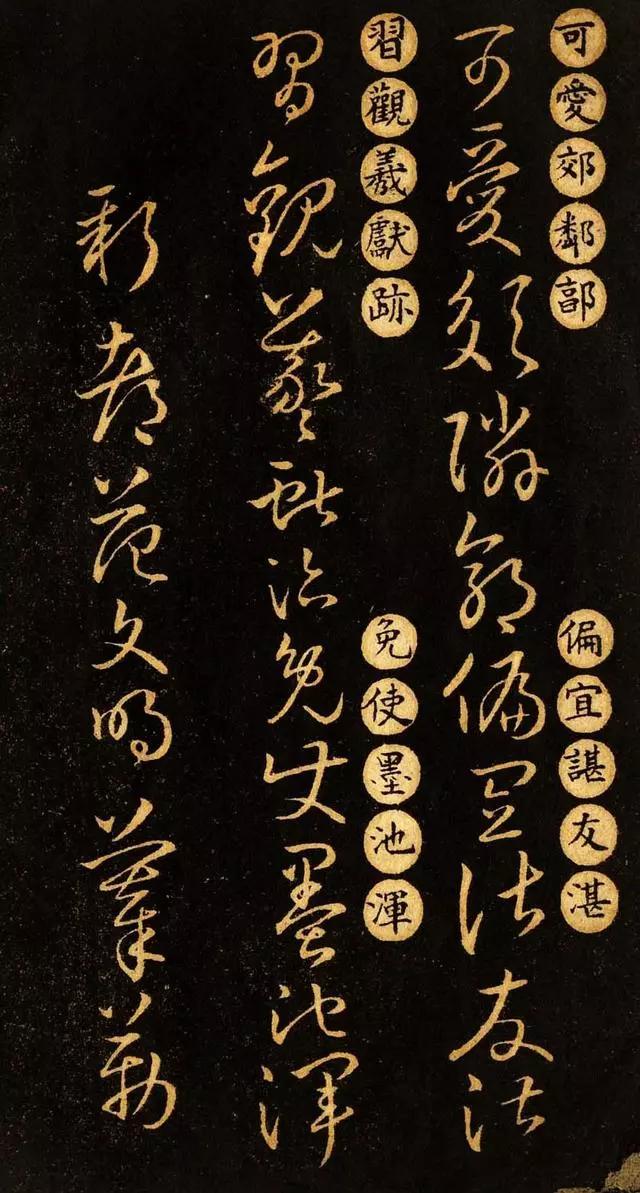 可愛郊鄰
偏宜諶友湛
可愛郊鄰偏宜諶友湛
習觀羲獻跡
免使墨池渾
習觀羲獻跡免使墨池渾
新都范文明摹勒